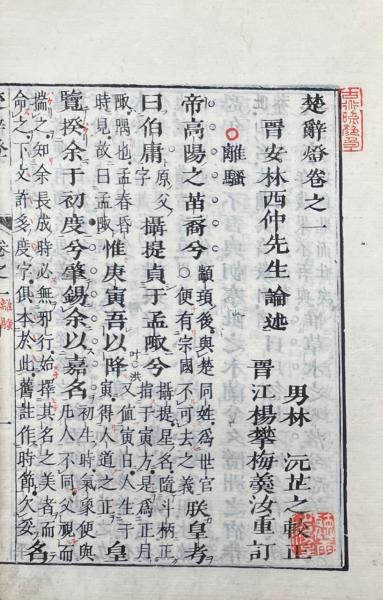 楚辭燈卷之一
晉安林西仲先生論述
男林沅芷之較正
晉江楊攀梅羲汝重訂
離騷
帝高陽之苗裔兮 顓頊後與楚同姓為世官便有宗國不可去之義 朕皇考
曰伯庸 原父字 攝提貞于孟陬兮 攝提星名隨斗柄正指于寅方是為正月
陬隅也孟春昏時見故曰孟陬 惟庚寅吾以降 叶洪 又值寅日人生于寅得人道之正 皇
覽揆余于初度兮肇錫余以嘉名 初生時氣象便與凡人不同父視而
揣之知余長成時必無邪行始擇其名之美者而命之下文許多度字俱本於此舊註作時節欠妥 名